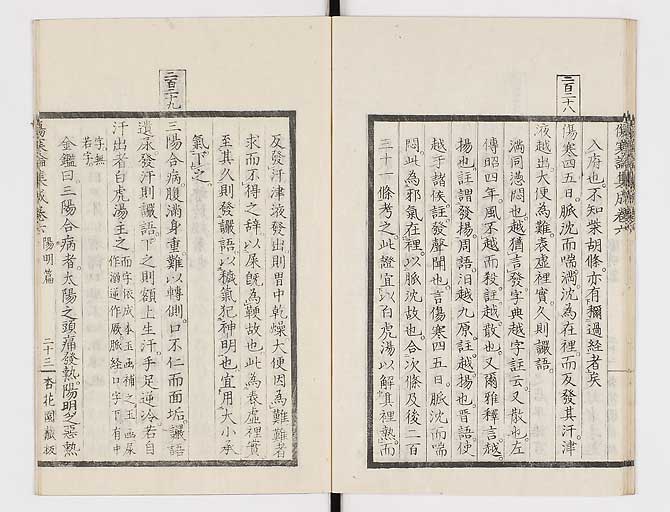 二百二十八
傷寒論集成卷六
入府也。不知柴胡條亦有爾過經者矣
傷寒四五日。脈沈而喘滿。沈為在裡。而反發其汗津
液越出。大便為難。表虛裡實。久則讝語。
滿同懣悶也。越猶言發。字典越字註云。又散也。左
傳昭四年。風不越而殺。註越散也。又爾雅釋言。越。
揚也。註謂發揚。周語。汨越九原。註越。揚也。晉語。使
越于諸侯。註發聲聞也。言傷寒四五日。脈沈而喘
悶。此為邪氣在裡。以脈沈故也。合次條及後二百
三十一條考之。此證宜以白虎湯。以解其裡熱。而
反發汗。津液發出。則胃中乾燥。大便因為難。難者
求而不得之辭。以屎既為鞕故也。此為表虛裡實
至其久則發讝語。以穢氣犯神明也。宜用大小承
氣下之
二百二十九
三陽合病。腹滿身重。難以轉側。口不仁而面垢。讝語
遺尿。發汗則讝語。下之則額上生汗。手足逆冷。若自
汗出者。白虎湯主之
金鑑曰。三陽合病者。太陽之頭痛發熱。陽明之惡熱
傷寒論集成卷六 陽明篇 二十三 杏花園藏板